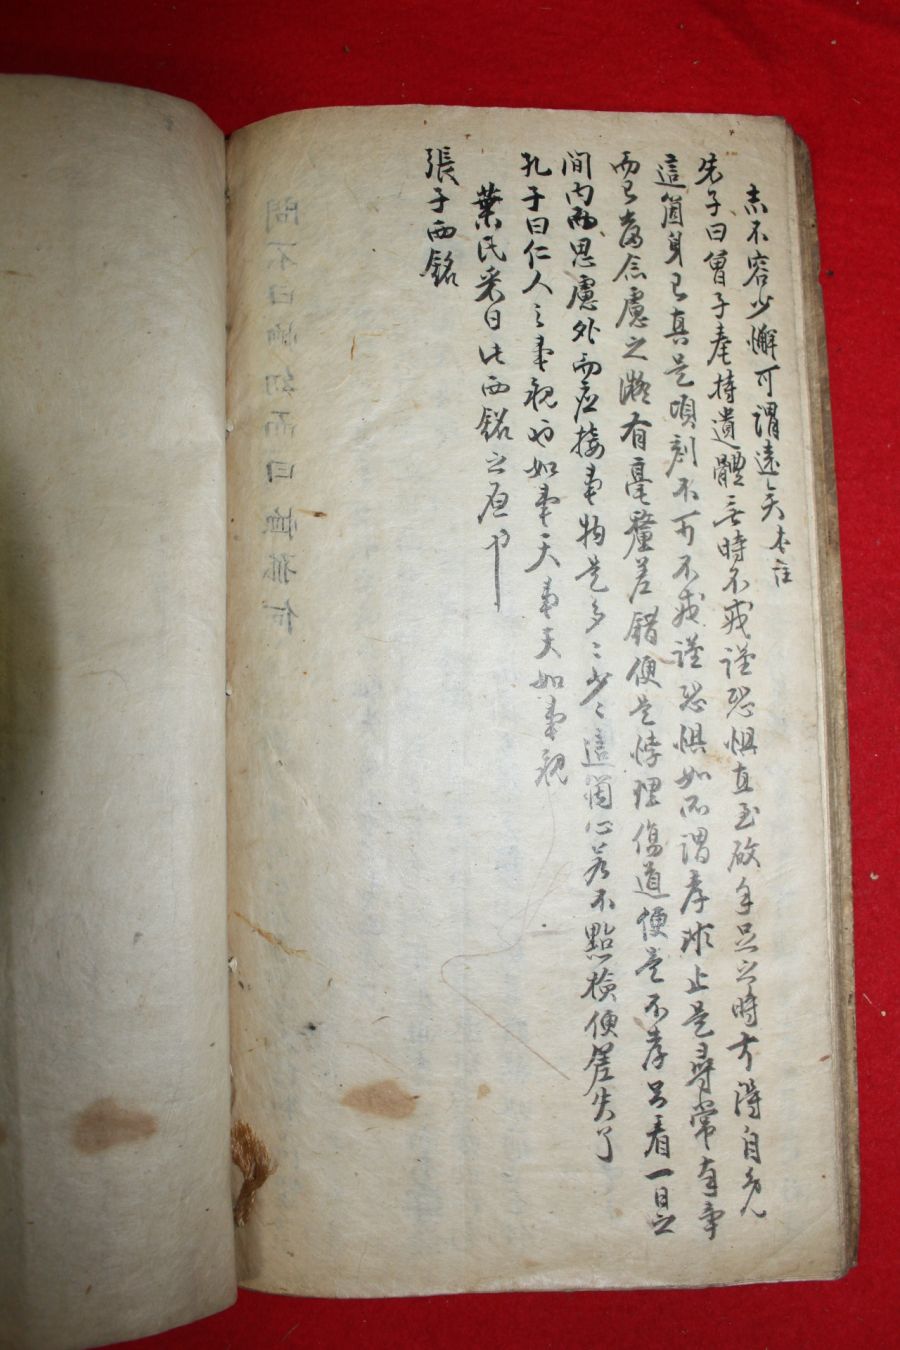 志不容少懈可謂遠矣本註
朱子曰曾子奉持遺體無時不戒謹恐懼直至啟手足之時方得自免
這箇身已真是頃刻不可不戒謹恐懼如所謂孝非止是尋常奉事
而已當念慮之微有毫釐差錯便是悖理傷道便是不孝只看一日之
間內而思慮外而應接事物是多二少二這箇心若不點檢便差失了
孔子曰仁人之事親也如事天事天如事親
葉氏采曰此西銘之原
張子西銘